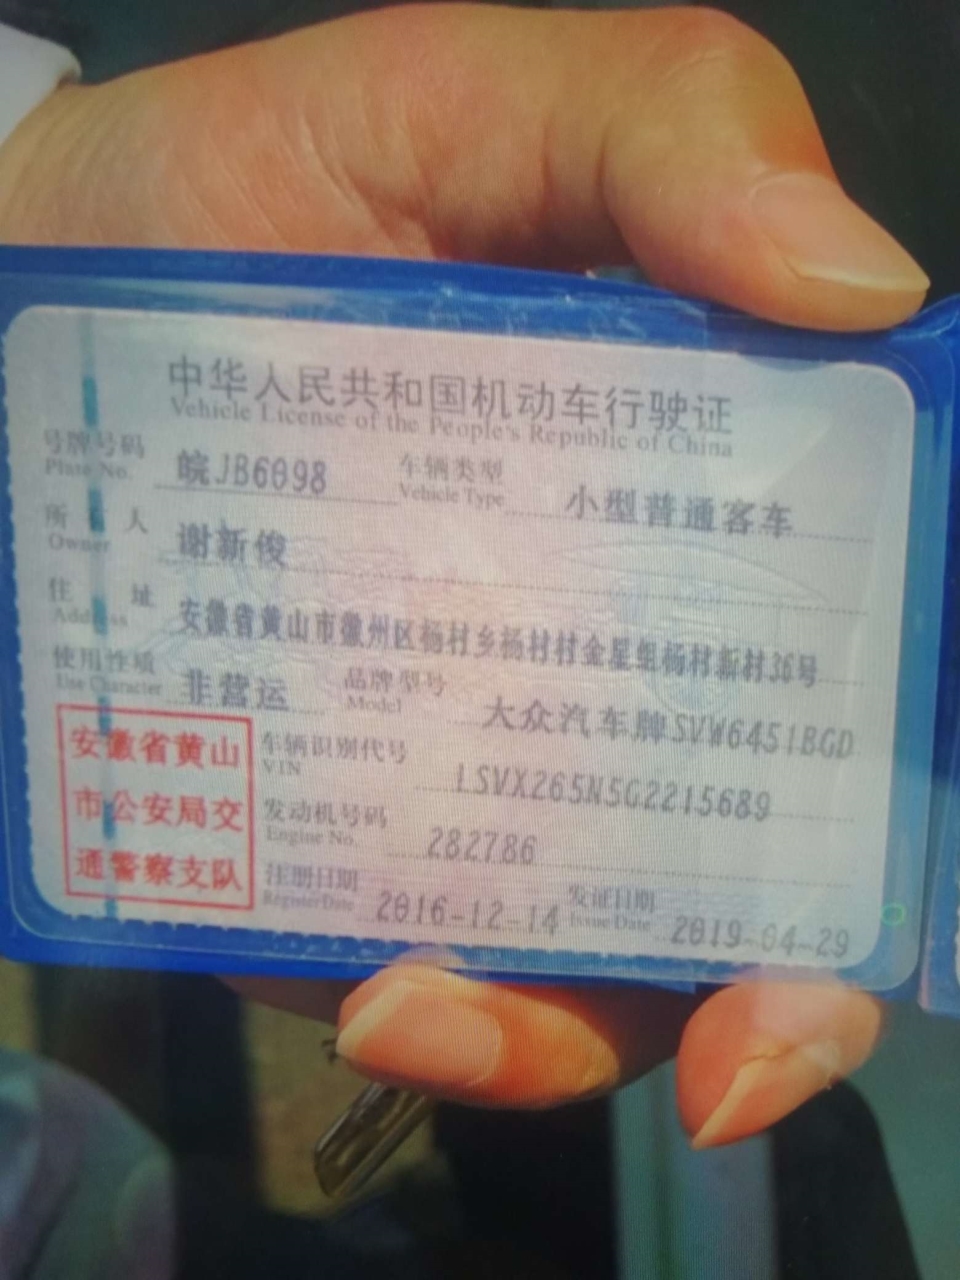 中华人民共和国机动车行驶证
Vehicle License of the People's Republic of China
号牌号码 皖JB6098 车辆类型 小型普通客车
Plate No. Vehicle Type
所有人 谢新俊
Owner
住址 安徽省黄山市徽州区杨村乡杨村村金星组杨村新村36号
Address
使用性质 非营运 品牌型号 大众汽车牌SVW6451BGD
Use Character Model
安徽省黄山
市公安局交
通警察支队
车辆识别代号 LSVX265N5G2215689
VIN
发动机号码 282786
Engine No.
注册日期 2016-12-14 发证日期 2019-04-29
Register Date Issue Date